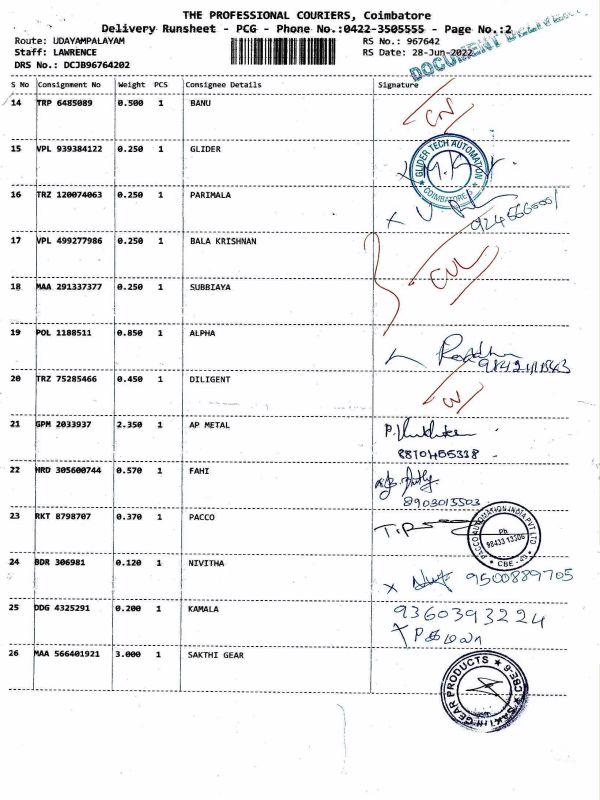 THE PROFESSIONAL COURIERS, Coimbatore
Delivery Runsheet - PCG - Phone No.:0422-3505555 - Page No.:2
Route: UDAYAMPALAYAM
RS No.: 967642
Staff: LAWRENCE
RS Date: 28-Jun-2022
DRS No.: DCJB96764202
S No Consignment No Weight PCS Consignee Details Signature
14 TRP 6485089 0.500 1 BANU
15 VPL 939384122 0.250 1 GLIDER
GLIDER TECH AUTOMATION
COIMBATORE
16 TRZ 120074063 0.250 1 PARIMALA
17 VPL 499277986 0.250 1 BALA KRISHNAN
18 MAA 291337377 0.250 1 SUBBIAYA
19 POL 1188511 0.850 1 ALPHA
20 TRZ 75285466 0.450 1 DILIGENT
21 GPM 2033937 2.350 1 AP METAL
8810455338
22 HRD 305600744 0.570 1 FAHI
8903013503
23 RKT 8798707 0.370 1 PACCO
PACCO AUTOMATION INDIA PVT LTD
Ph
98433 13306
CBE
24 BDR 306981 0.120 1 NIVITHA
9500889705
25 DDG 4325291 0.200 1 KAMALA
9360393224
26 MAA 566401921 3.000 1 SAKTHI GEAR
SAKTHI GEAR PRODUCTS
CBE-6